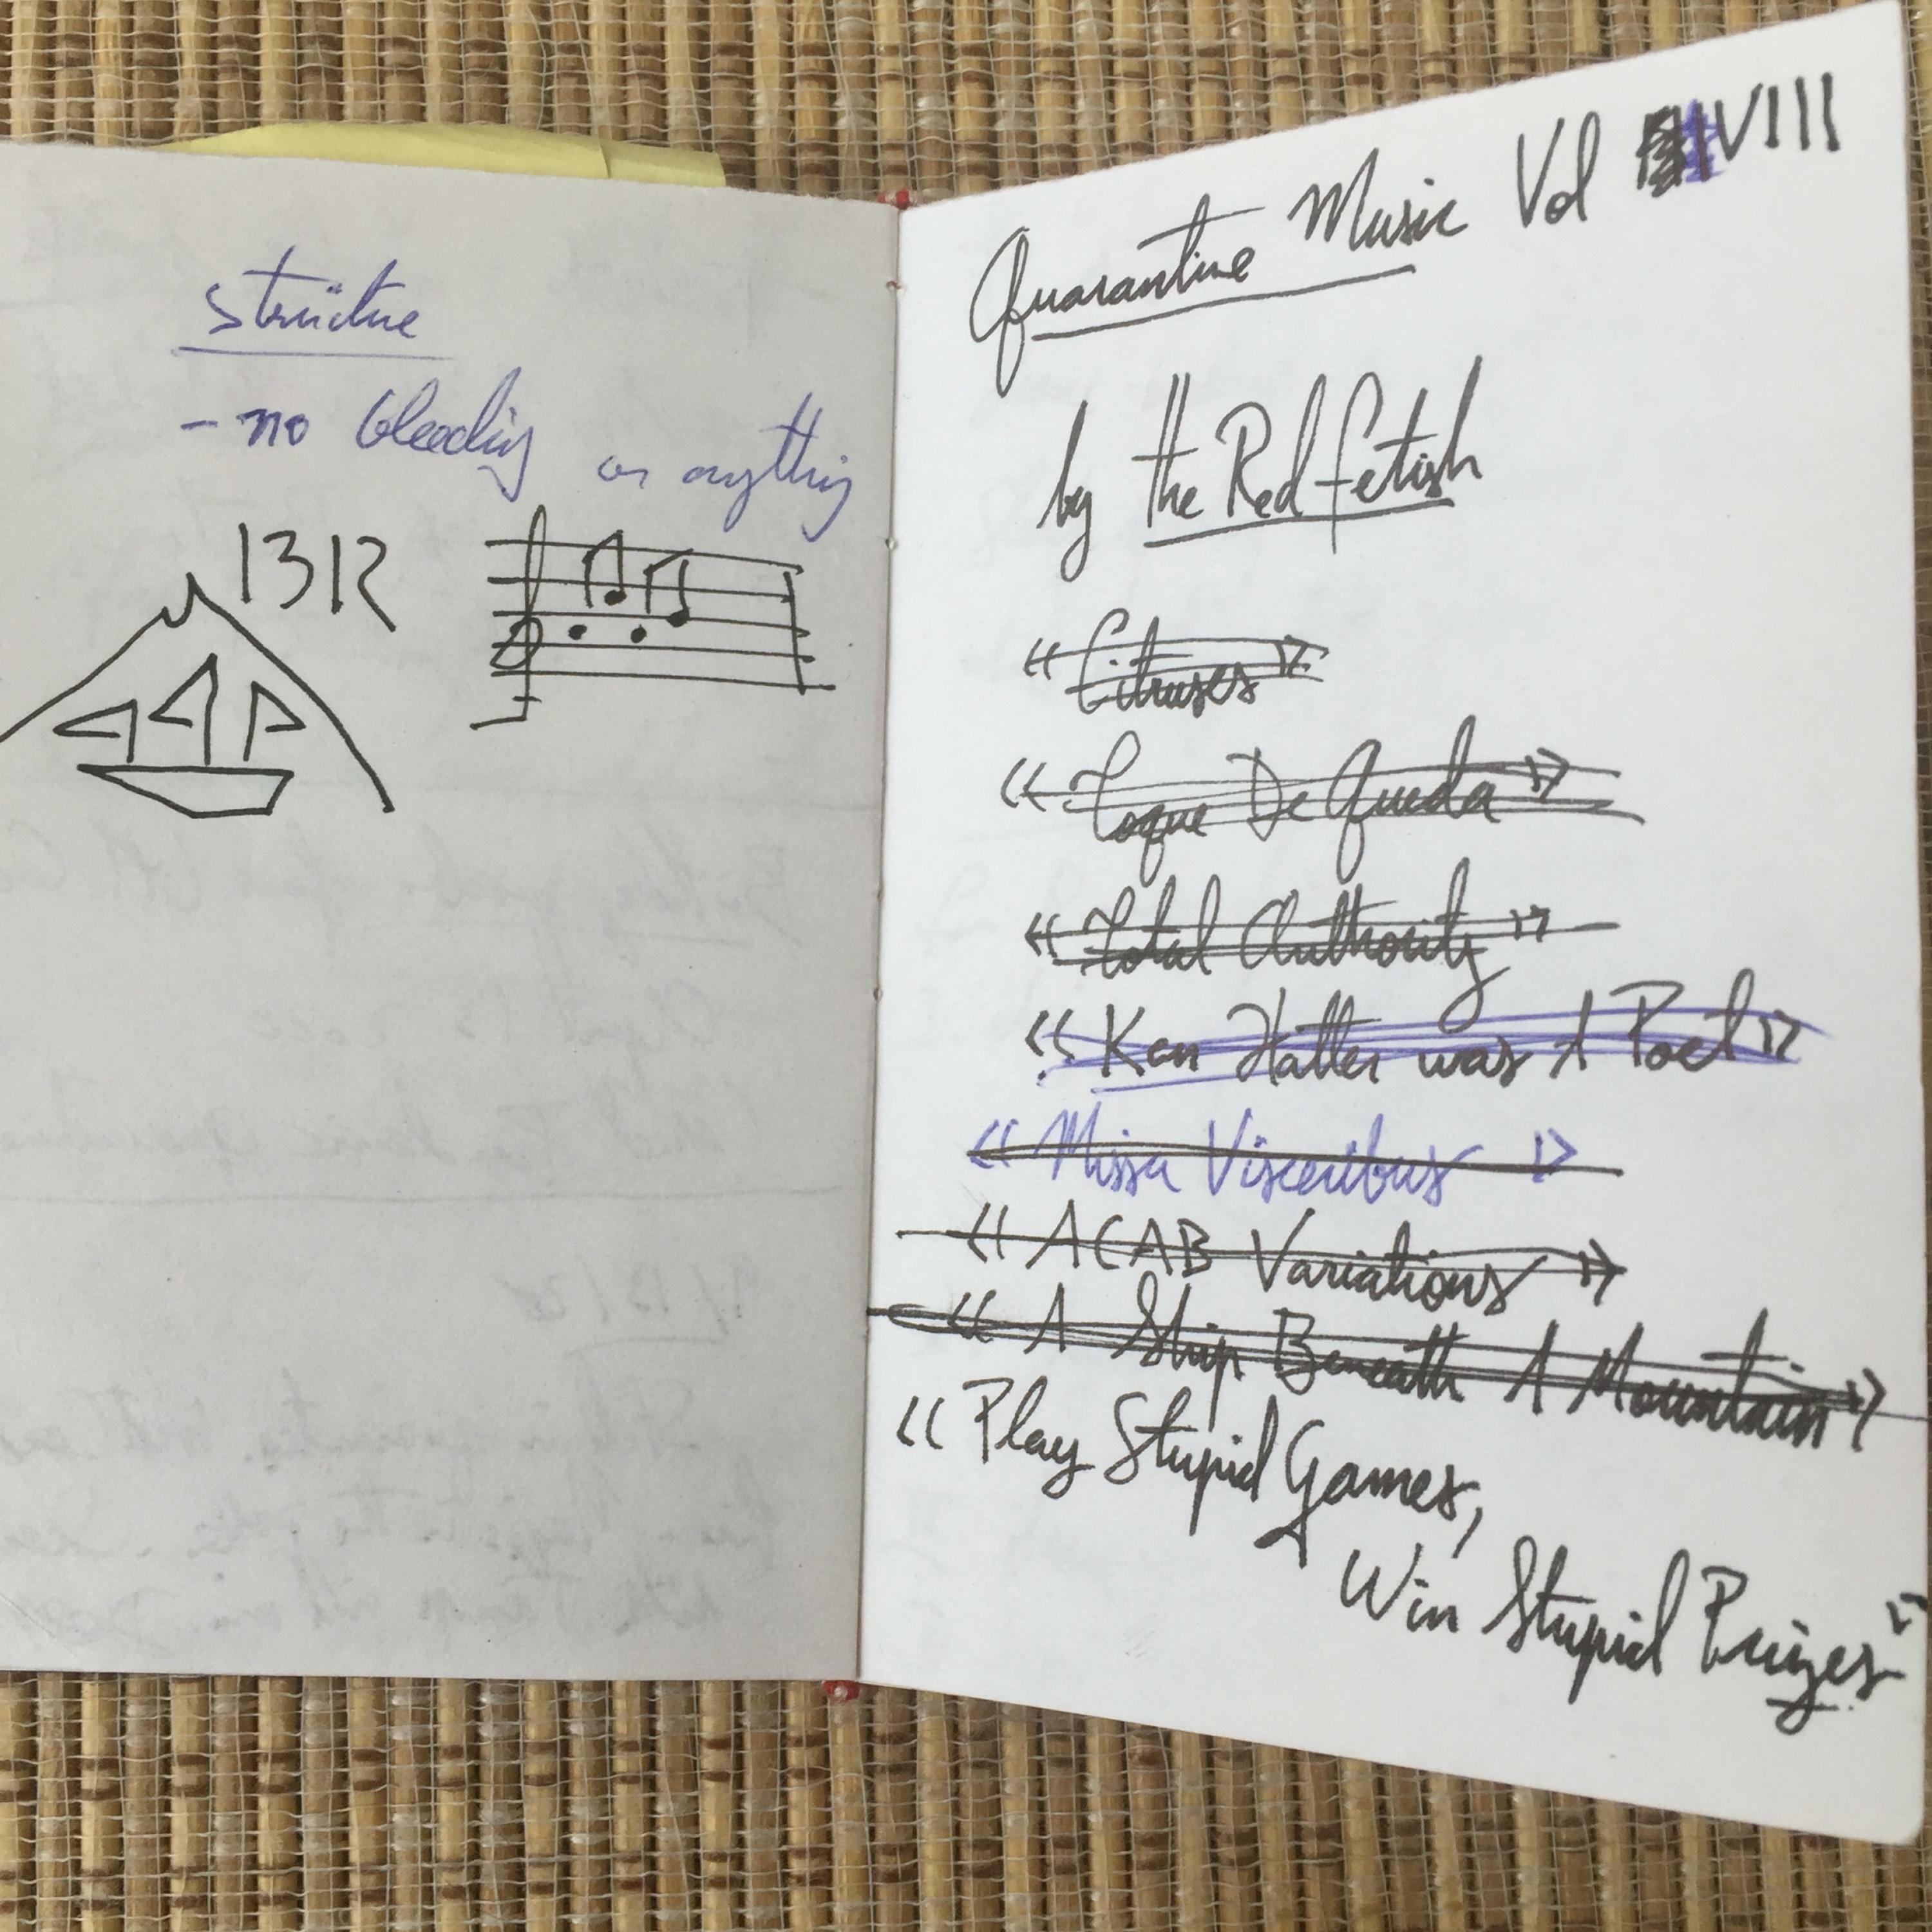 strücture
- no bleeding or anything
1312
Quarantine Music Vol VIII
by the Red Fetish
«Citruses»
«Toque De Queda»
«Total Authority»
«Ken Hatter was A Poet»
«Missa Visceribus»
«ACAB Variations»
«A Ship Beneath A Mountain»
«Play Stupid Games,
Win Stupid Prizes»